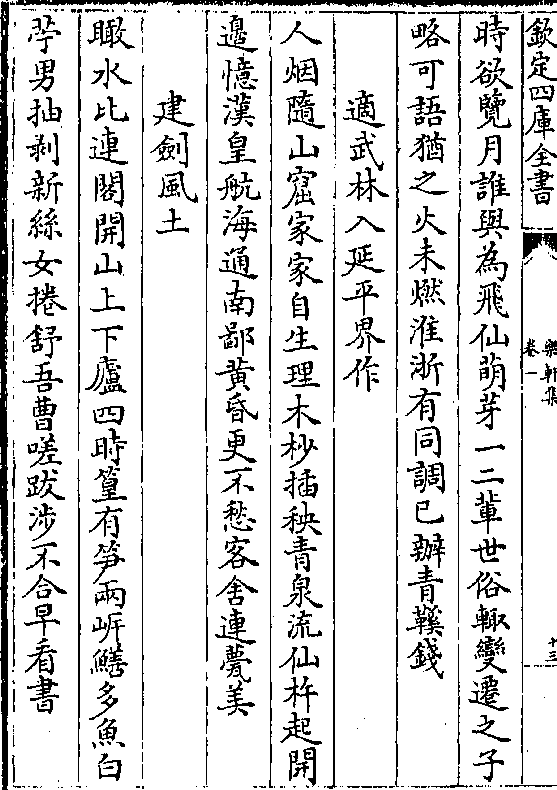 欽定四庫全書
卷一
十三
時欲覽月誰與為飛仙萌芽一二輩世俗輒變遷之子
略可語猶之火未燃淮浙有同調已辦青鞵錢
適武林入延平界作
人烟隨山窟家家自生理木杪插秧青泉流仙杵起開
邉憶漢皇航海通南鄙黄昏更不愁客舍連甍美
建劍風土
瞰水比連閣開山上下廬四時篁有笋兩㟁鱔多魚白
苧男抽剥新絲女捲舒吾曹嗟跋涉不合早看書